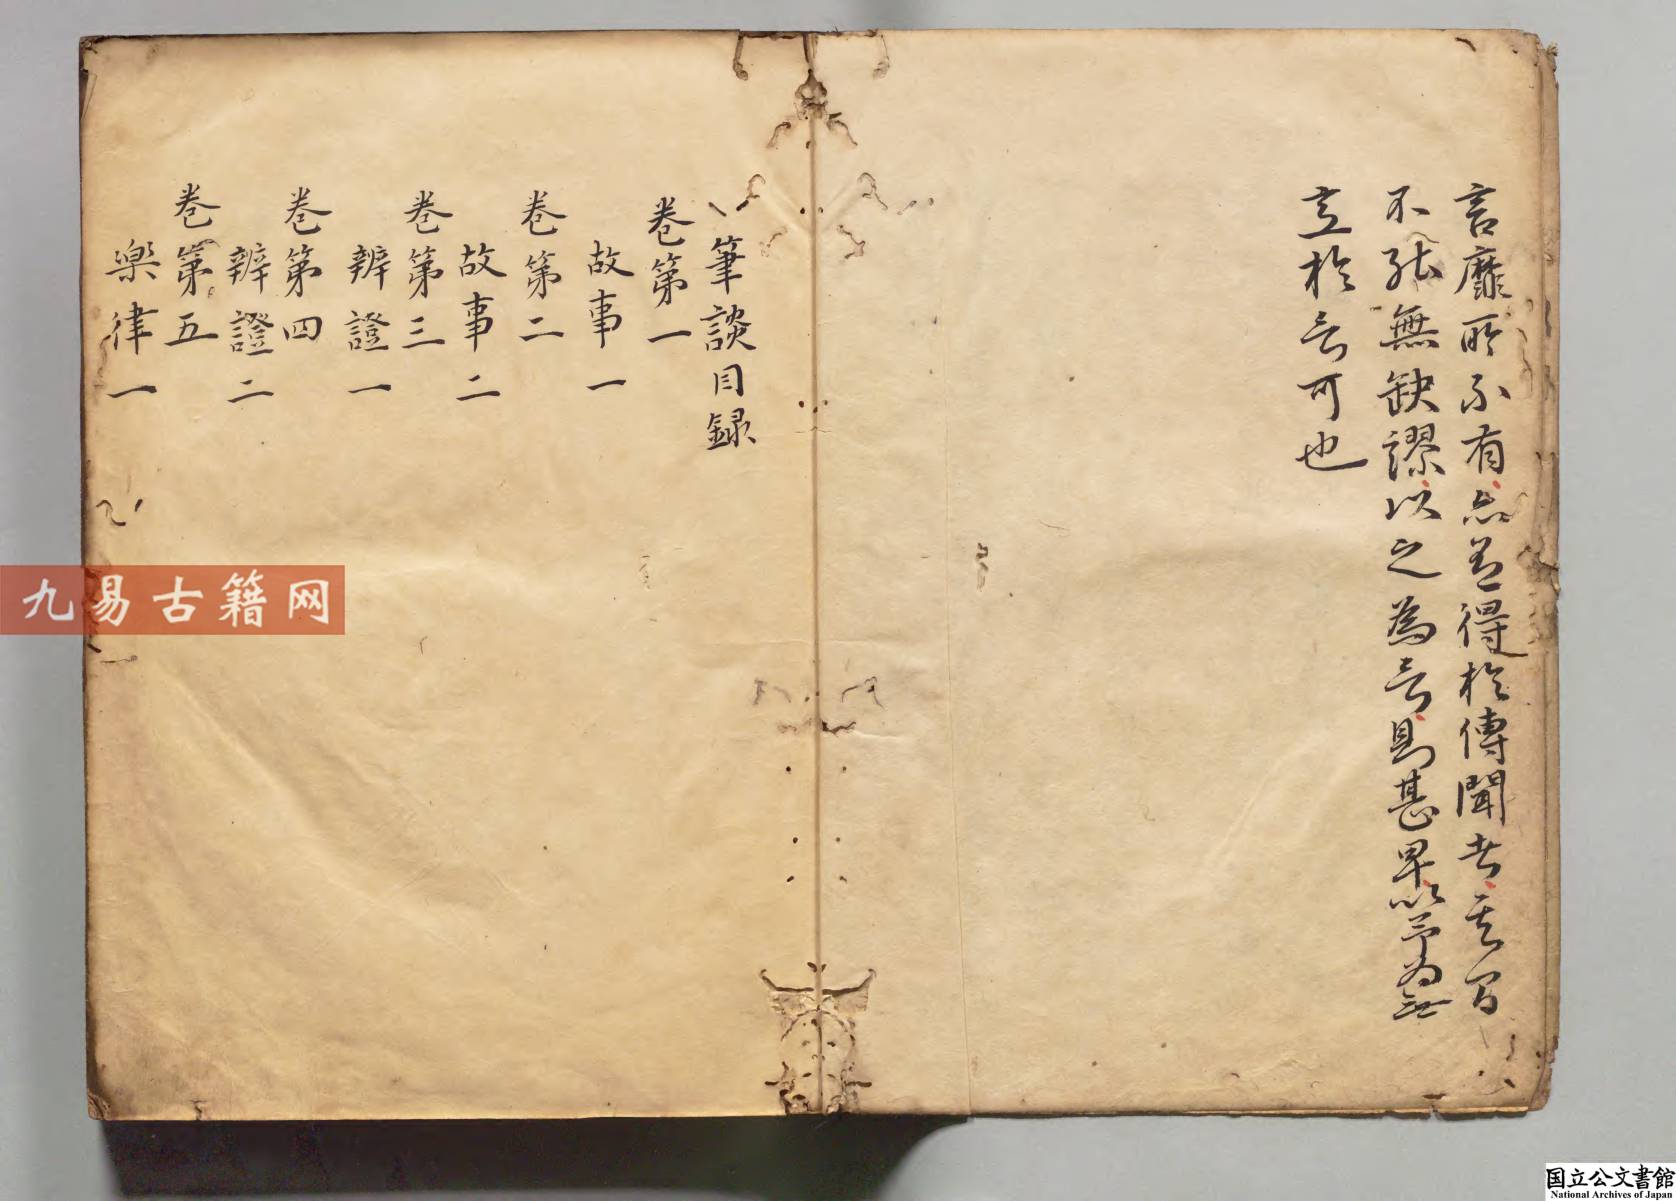 言靡所不有亦有得於傳聞者其間
不能無缺謬以之為言則甚卑以予為無
意於言可也
筆談目録
卷第一
故事一
卷第二
故事二
卷第三
辨證一
卷第四
辨證二
卷第五
樂律一
九易古籍网
国立公文書館
National Archives of Japan